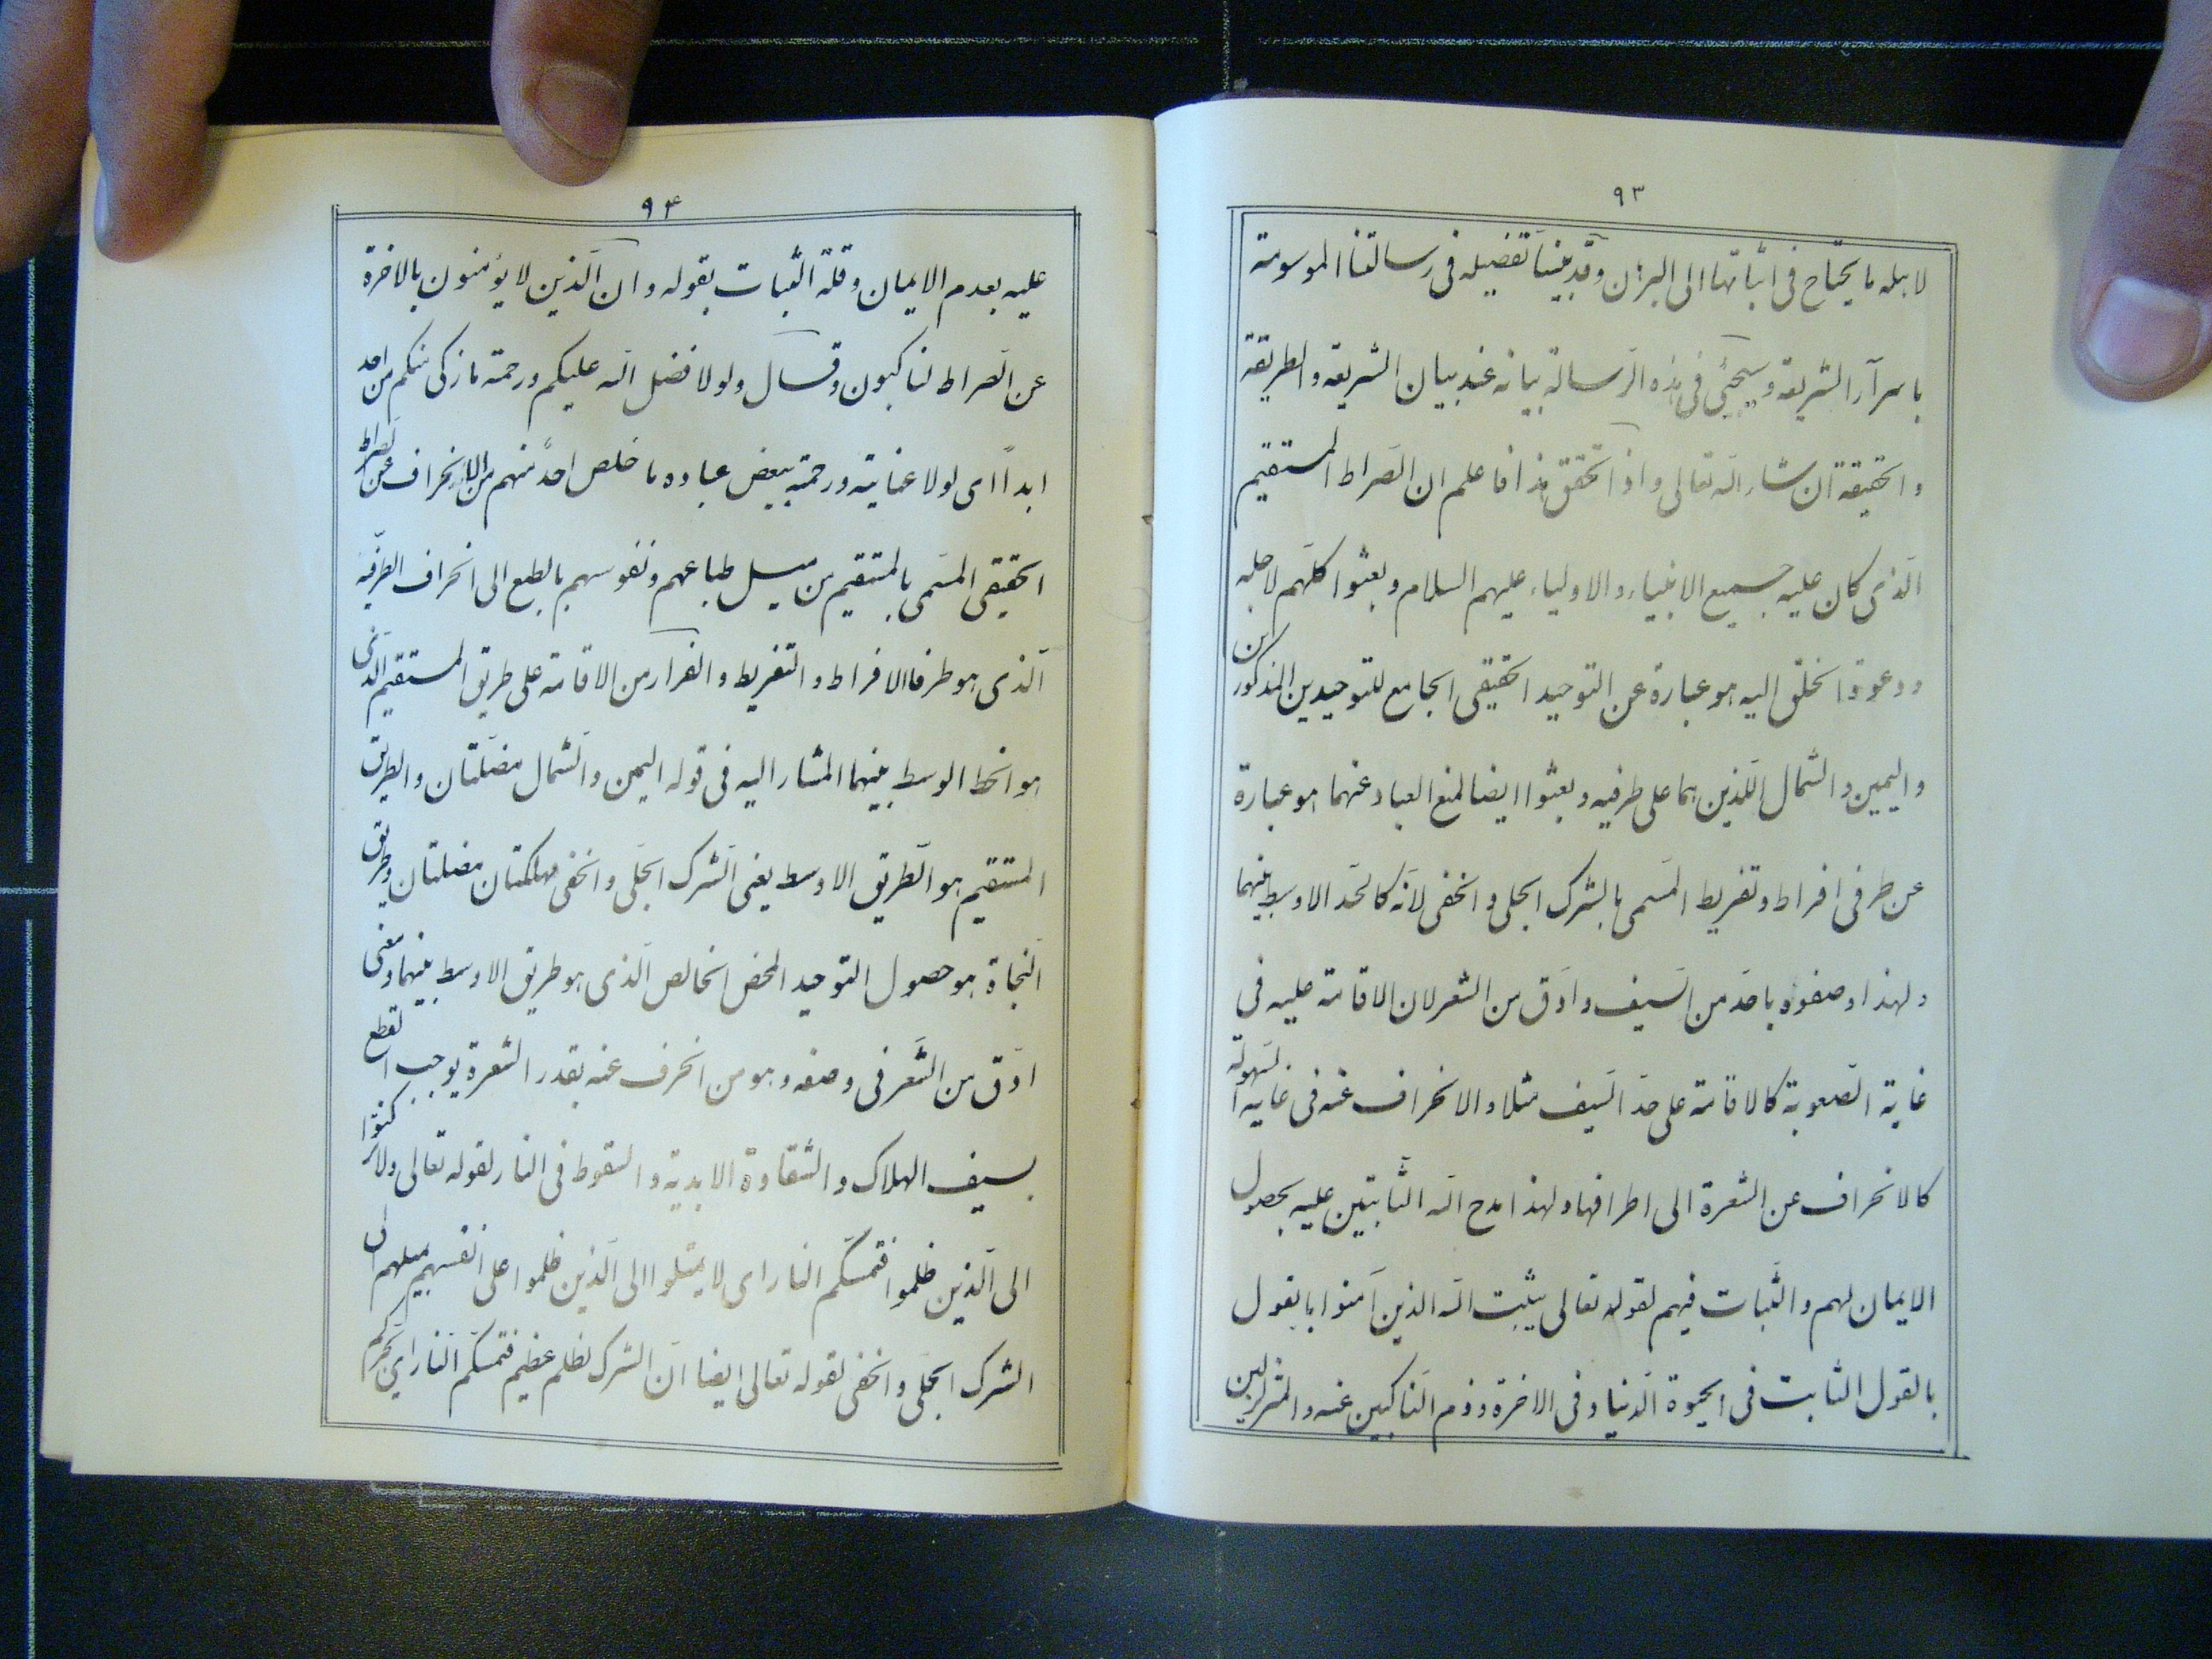 ٩٣
لاهله ما يحتاج فى اثباتها الى البرهان وقد بينا تفصيله فى رسالتنا الموسومة
باسرار الشريعه وسيجئى فى هذه الرسالة بيانه عند بيان الشريعه والطريقة
والحقيقة ان شاء الله تعالى واذا تحقق هذا فاعلم ان الصراط المستقيم
الذى كان عليه جميع الانبياء والاولياء عليهم السلام وبعثوا كلهم لاجله
ودعوة الخلق اليه هو عبارة عن التوحيد الحقيقى الجامع للتوحيدين المذكورين
واليمين والشمال اللذين هما على طرفيه وبعثوا ايضا لمنع العباد عنهما هو عبارة
عن طرفى افراط وتفريط المسمى بالشرك الجلى والخفى لانه كالحد الاوسط بينهما
ولهذا وصفوه باحد من السيف وادق من الشعر لان الاقامة عليه فى
غاية الصعوبة كالاقامة على حد السيف مثلا والانحراف عنه فى غاية السهولة
كالانحراف عن الشعرة الى اطرافها ولهذا مدح الله الثابتين عليه بحصول
الايمان لهم والثبات فيهم لقوله تعالى يثبت الله الذين آمنوا بالقول
بالقول الثابت فى الحيوة الدنيا وفى الاخرة وذم الناكبين عنه والمتزلزلين
٩٤
عليه بعدم الايمان وقلة الثبات بقوله وان الذين لا يؤمنون بالاخرة
عن الصراط لناكبون وقال ولولا فضل الله عليكم ورحمته ما زكى منكم من احد
ابداً اى لولا عنايته ورحمته ببعض عباده ما خلص احدٌ منهم من الانحراف عن الصراط
الحقيقى المسمى بالمستقيم من ميل طباعهم ونفوسهم بالطبع الى انحراف الطرفيه
الذى هو طرفا الافراط والتفريط والفرار من الاقامة على طريق المستقيم الذى
هو الخط الوسط بينهما المشار اليه فى قوله اليمن والشمال مضلتان والطريق
المستقيم هو الطريق الاوسط يعنى الشرك الجلى والخفى مهلكتان مضلتان وطريق
النجاة هو حصول التوحيد المحض الخالص الذى هو طريق الاوسط بينهما ومعنى
ادق من الشعر فى وصفه وهو من انحرف عنه بقدر الشعرة يوجب القطع
بسيف الهلاك والشقاوة الابدية والسقوط فى النار لقوله تعالى ولا تركنوا
الى الذين ظلموا فتمسكم النار اى لا يميلوا الى الذين ظلموا على انفسهم بميلهم الى
الشرك الجلى والخفى لقوله تعالى ايضا ان الشرك لظلم عظيم فتمسكم النار اى